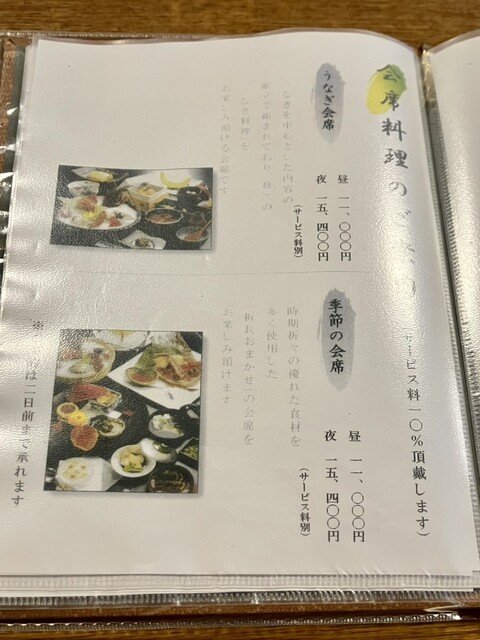 会席料理の
サービス料一〇％頂戴します)
うなぎ会席
昼 一一、〇〇〇円
夜 一五、四〇〇円
(サービス料別)
うなぎを中心とした内容の
献立で組まれており、数々の
うなぎ料理を
お楽しみ頂ける会席です
季節の会席
昼 一一、〇〇〇円
夜 一五、四〇〇円
(サービス料別)
時期折々の優れた食材を
多く使用した
板長おまかせの会席を
お楽しみ頂けます
は二日前まで承れます